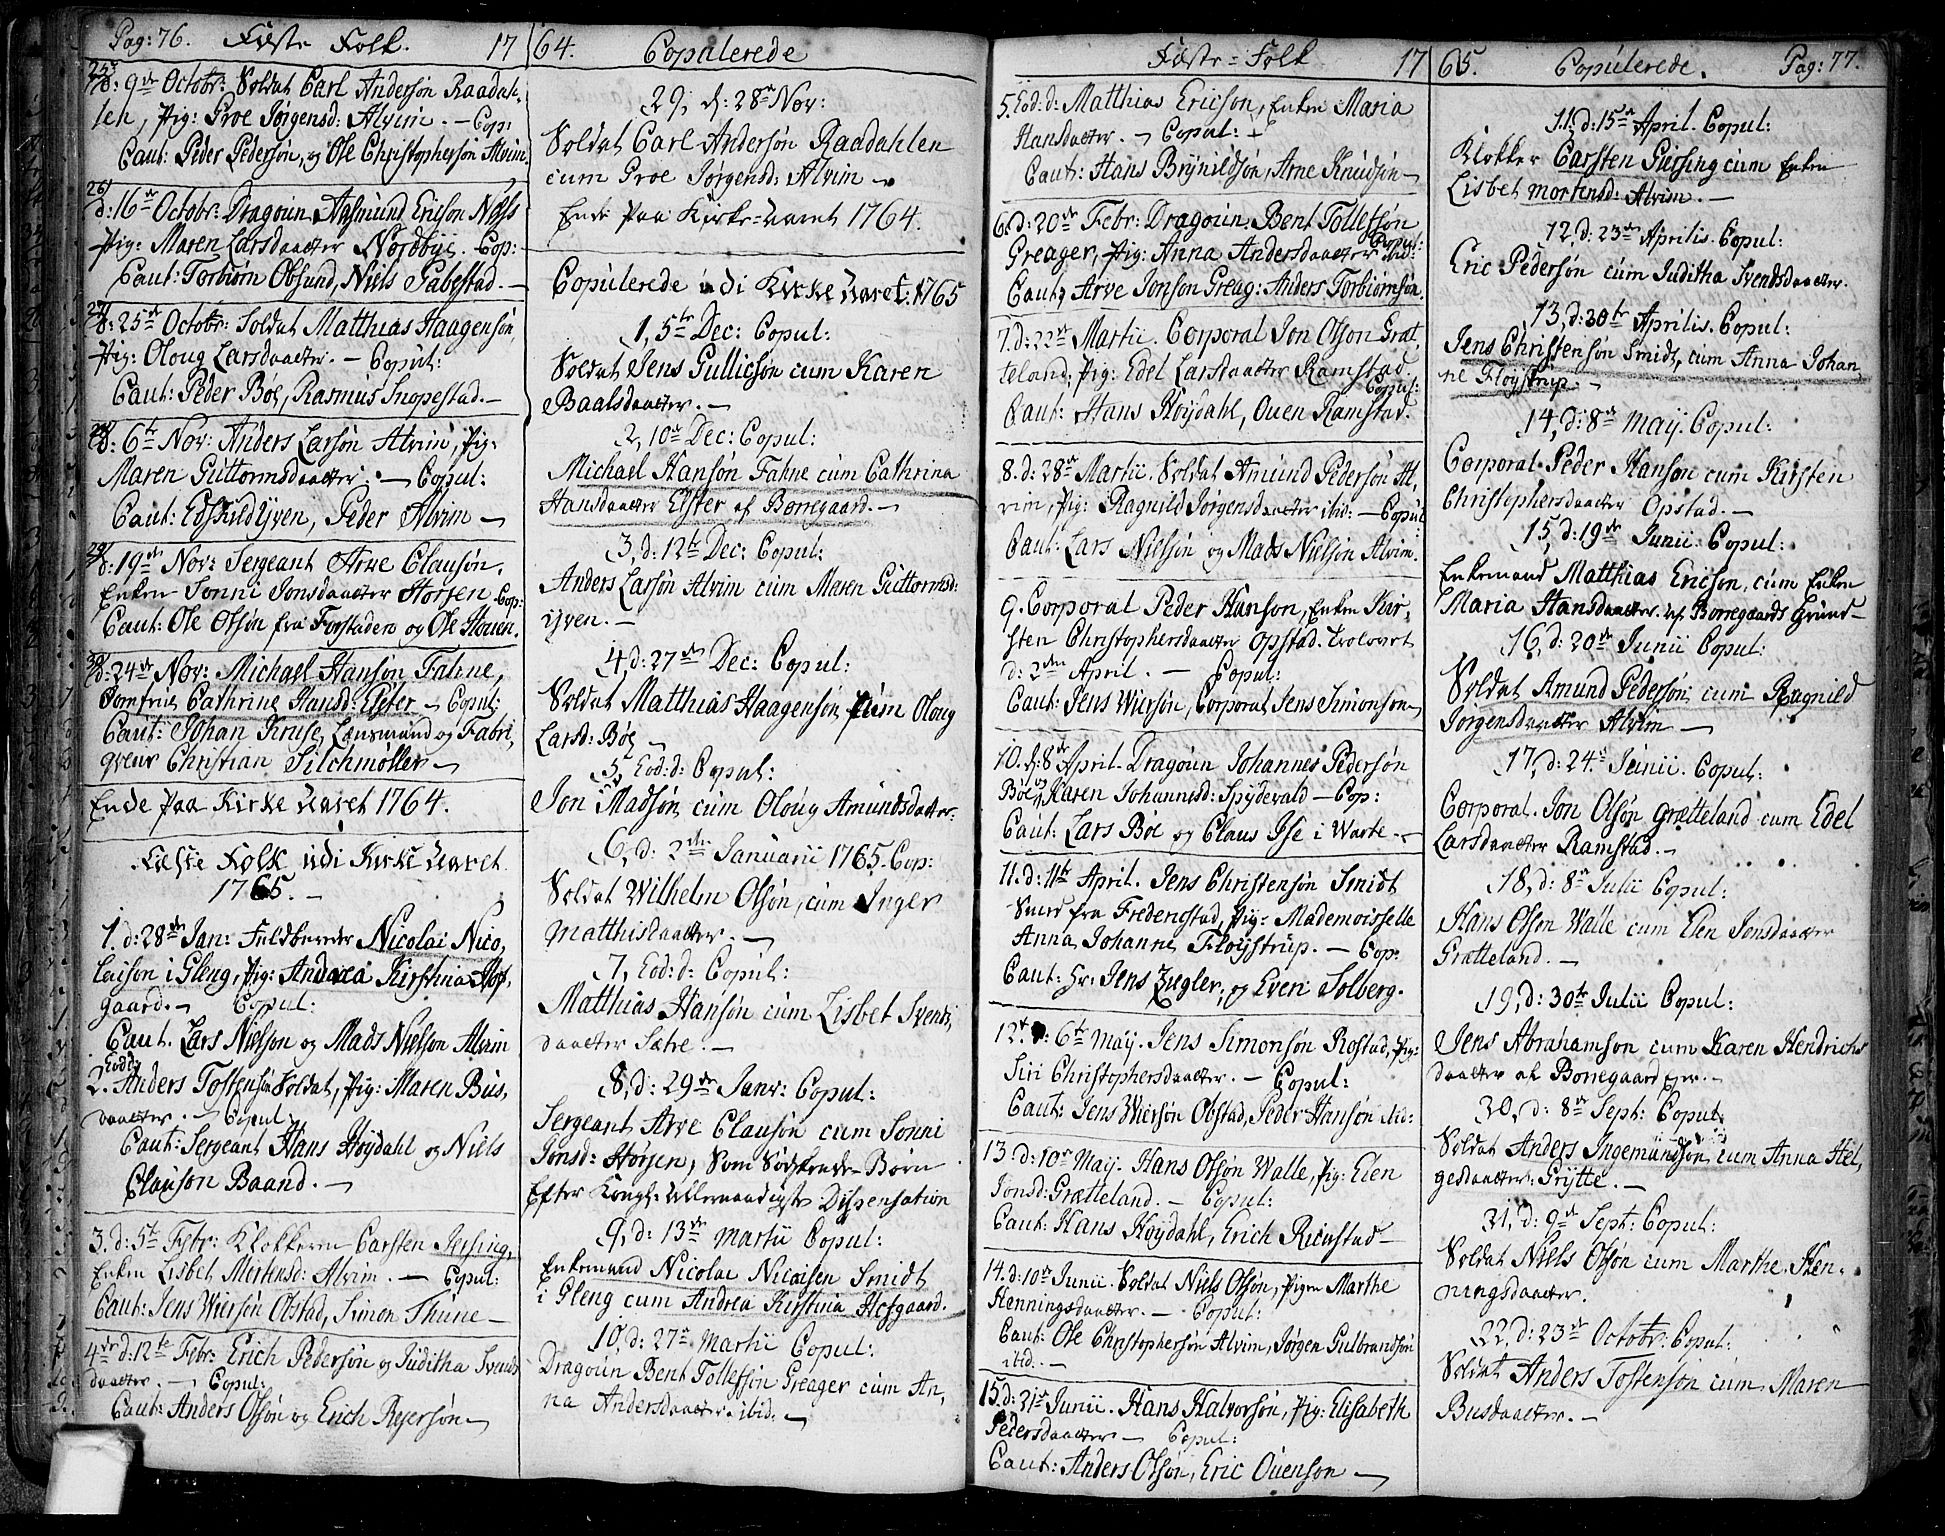 Pag: 76. Fæste Folk. 17
25/ d: 9de Octobr: Soldat Carl Andersøn Raadah-
len, Pig: Groe Jørgensd: Alvim. — Cop:
Caut: Peder Pedersøn, og Ole Christophersøn Alvim.
26/ d: 16de Octobr: Dragoun Aasmund Ericson Næss
Pig: Maren Larsdaatter Nordbye. Cop:
Caut: Torbiørn Obsund, Niels Gabestad. —
27/ d: 25de Octobr: Soldat Matthias Haagensøn,
Pig: Oloug Larsdaatter. — Copul:
Caut: Peder Boe, Rasmus Snopestad. —
28/ d: 6te Nov: Anders Larsøn Alvim, Pig:
Maren Guttormsdaatter. — Copul:
Caut: Edskild Yven, Peder Alvim —
29/ d: 19de Nov: Sergeant Arve Clausøn,
Enken Sonni Jonsdaatter Horsen Cop:
Caut: Ole Olsøn fra Forstaden og Ole Houen.
30/ d: 24de Nov: Michael Hanson Fahne,
Jomfrue Cathrine Hansd: Elster — Copul:
Caut: Johan Kruse, Lænsmand og Fabri-
qveur Christian Silchmøller —
Ende paa Kirke Aaret 1764.
Fæste Folk udi Kirke Aaret
1765. —
1. d: 28de Jan: Feldbereder Nicolai Nico-
laison i Gleng, Pig: Andrea Kirstina Hof-
gaard. — Copul:
Caut. Lars Nielson og Mads Nielson Alvim
2. Eod: d: Anders Tostensøn Soldat, Pig: Maren Bus-
daatter. — Copul:
Caut: Sergeant Hans Høydahl og Niels
Clauson Baand. —
3. d: 5te Febr: Klokkeren Carsten Giersing,
Enken Lisbet Mortensd: Alvim. — Copul:
Caut: Jens Wiersøn Obstad, Simon Thune —
4de d: 12te Febr: Erich Pedersøn og Juditha Svends-
daatter. — Copul:
Caut: Anders Olsøn og Erich Reyersøn —
64. Copulerede
29, d: 28de Nov:
Soldat Carl Andersøn Raadahlen
cum Groe Jørgensd: Alvim —
Ende paa Kirke-Aaret 1764.
Copulerede udi Kirke Aaret 1765
1, 5te Dec: Copul:
Soldat Jens Gullicsøn cum Karen
Baalsdaatter. —
2, 10de Dec: Copul:
Michael Hansøn Fahne cum Cathrina
Hansdaatter Elster af Borregaard. —
3, d: 12te Dec: Copul:
Anders Larsøn Alvim cum Maren Guttormsd:
Yven. —
4, d: 27de Dec: Copul:
Soldat Matthias Haagensøn cum Oloug
Larsd: Bøe —
5, Eod: d: Copul:
Jon Madsøn cum Oloug Amundsdaatter.
6, d: 2den Januarii 1765. Cop:
Soldat Wilhelm Olsøn, cum Inger
Matthisdaatter. —
7, Eod: d: Copul:
Matthias Hansøn cum Lisbet Svends-
daatter Sætre. —
8, d: 29de Janr: Copul:
Sergeant Arve Clausøn cum Sonni
Jonsd: Horsen, Som Sødskende-Børn
Efter Kongl: Allernaadigste Dispensation
9, d: 13de Martii Copul:
Enkemand Nicolai Nicoisen Smidt
i Gleng cum Andrea Kirstina Hofgaard.
10, d: 27de Martii Copul:
Dragoun Bent Tollefsøn Greager cum An-
na Andersdaatter ibid. —
Fæste-Folk 17
5. Eod: d: Matthias Ericson, Enken Maria
Hansdaatter. — Copul: —
Caut: Hans Brynildsøn, Arne Knudsøn —
6. d: 20de Febr: Dragoun Bent Tollefsøn
Greager, Pig: Anna Andersdaatter ibid: Copul:
Caut: Arve Jonson Greag: Anders Torbiørnsøn.
7. d: 22de Martii. Corporal Jon Olson Græt-
teland, Pig: Edel Larsdaatter Ramstad.
Copul:
Caut: Hans Høydahl, Ouen Ramstad.
8. d: 28de Martii. Soldat Amund Pedersøn Al-
vim, Pig: Ragnild Jørgensdaatter ibid: — Copul:
Caut: Lars Nielsøn og Mads Nielsøn Alvim.
9. Corporal Peder Hanson, Enken Kir-
sten Christophersdaatter Opstad. trolovet
d: 2den April. — Copul:
Caut: Jens Wiersøn, Corporal Jens Simonson —
10. d: 8de April. Dragoun Johannes Pedersøn
Bøe og Karen Johannesd: Spydevald — Cop:
Caut: Lars Bøe og Claus Ise i Warte. —
11. d: 11te April. Jens Christensøn Smidt
Smed fra Fredericstad, Pig: Mademoisselle
Anna Johanne Fløystrup. — Cop:
Caut: Hr: Jens Ziegler, og Even Solberg.
12. d: 6te May. Jens Simonsøn Rostad, Pig:
Siri Christophersdaatter. — Copul:
Caut: Jens Wiersøn Obstad, Peder Hansøn ibid:
13. d: 10de May. Hans Olsøn Walle, Pig: Elen
Jonsd: Grætteland. — Copul:
Caut: Hans Høydahl, Erich Rierstad —
14. d: 10de Junii. Soldat Niels Olsøn, Pigen Marthe
Henningsdaatter. — Copul:
Caut: Ole Christophersøn Alvim, Jørgen Gulbrandsøn
ibid. —
15. d: 21de Junii. Hans Halvorsøn, Pig: Elisabeth
Pedersdaatter — Copul:
Caut: Anders Olsøn, Eric Ouenson —
65. Copulerede. Pag: 77.
11. d: 15de April. Copul:
Klokker Carsten Giersing cum Enken
Lisbet Mortensd: Alvim. —
12, d: 23de Aprilis. Copul:
Eric Pedersøn cum Juditha Svendsdaatter.
13, d: 30te Aprilis. Copul:
Jens Christensøn Smidt, cum Anna Johan-
ne Fløystrup —
14, d: 8de May. Copul:
Corporal Peder Hanson cum Kirsten
Christophersdaatter Opstad. —
15, d: 19de Junii Copul:
Enkemand Matthias Ericson, cum Enken
Maria Hansdaatter af Borregaards Grund —
16, d: 20de Junii Copul:
Soldat Amund Pedersøn cum Ragnild
Jørgensdaatter Alvim —
17, d: 24de Junii. Copul:
Corporal Jon Olsøn Grætteland cum Edel
Larsdaatter Ramstad. —
18, d: 8de Julii Copul:
Hans Olsen Walle cum Elen Jonsdaatter
Grætteland. —
19, d: 30te Julii Copul:
Jens Abrahamson cum Karen Hendrichs
daatter af Borregaard Ejer. —
20, d: 8de Sept: Copul:
Soldat Anders Ingemundsøn, cum Anna Hel-
gesdaatter Grytte. —
21, d: 9de Sept: Copul:
Soldat Niels Olsøn cum Marthe Hen-
ningsdaatter.
22, d: 23de Octobr: Copul:
Soldat Anders Tostenson cum Maren
Busdaatter. —